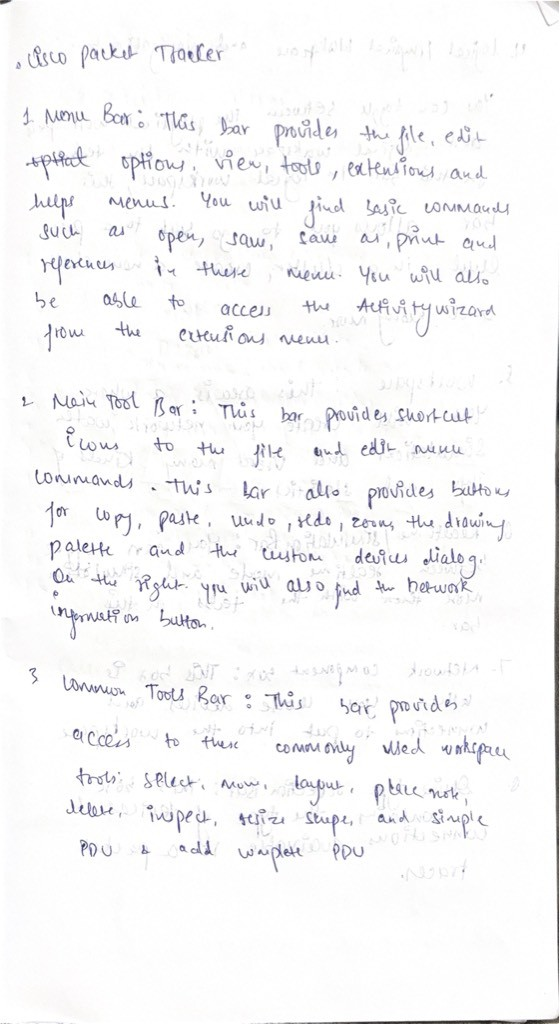 . Cisco packet Tracker
1 Menu Bar : This bar provides the file, edit
options, view, tools, extensions and
helps menus. You will find basic commands
such as open, save, save as, print and
references in these menu. You will also
be able to access the Activity wizard
from the extensions menu.
2 Main Tool Bar : This bar provides shortcut
icons to the file and edit menu
commands. This bar also provides buttons
for copy, paste, undo, redo, zoom, the drawing
palette and the custom devices dialog.
On the right you will also find the Network
information button.
3 Common Tools Bar : This bar provides
access to these commonly used workspace
tools: select, move, layout, place note,
delete, inspect, resize shape, and simple
PDU & add complete PDU